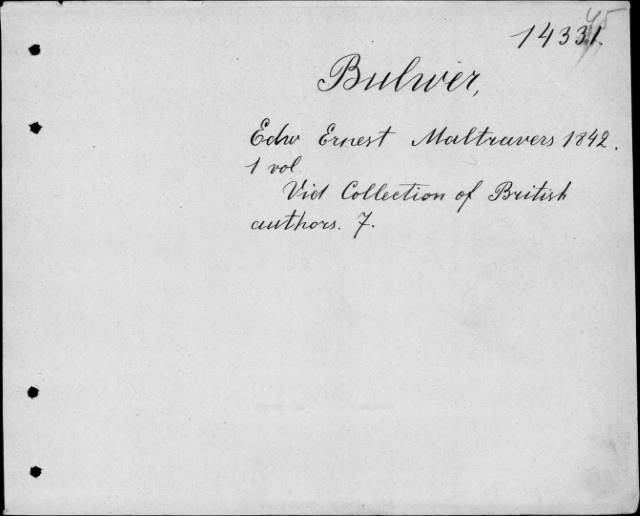 14331.
Bulwer,
Edw Ernest Maltravers 1842.
1 vol
Vid Collection of British
authors. 7.